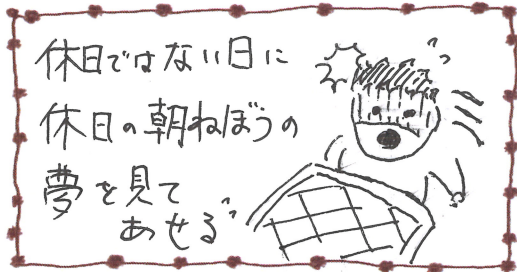 休日ではない日に
休日の朝ねぼうの
夢を見て
あせる